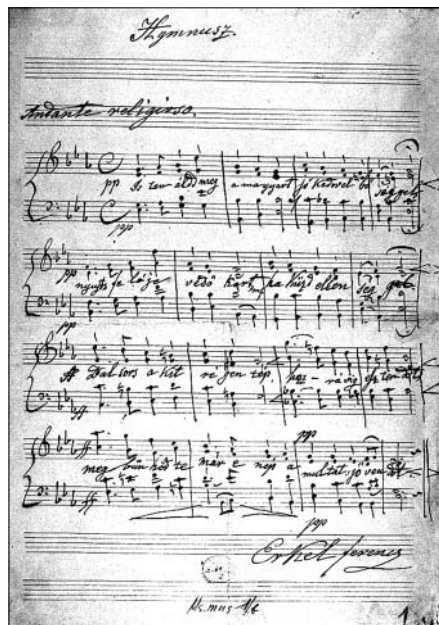 Hymnusz.
Andante religioso.
pp Is ten áldd meg a magyart jó kedvvel bő séggel
pp
pp nyújts fe lé je védő kart mf ha küzd ellen ség gel
pp
ff Bal sors a kit re gen tép, hoz-rá víg esz ten dőt
ff
ff pp
meg bűn hőd te már e nép a multat jövendőt
ff
pp
Erkel ferencz
Ms. mus
1